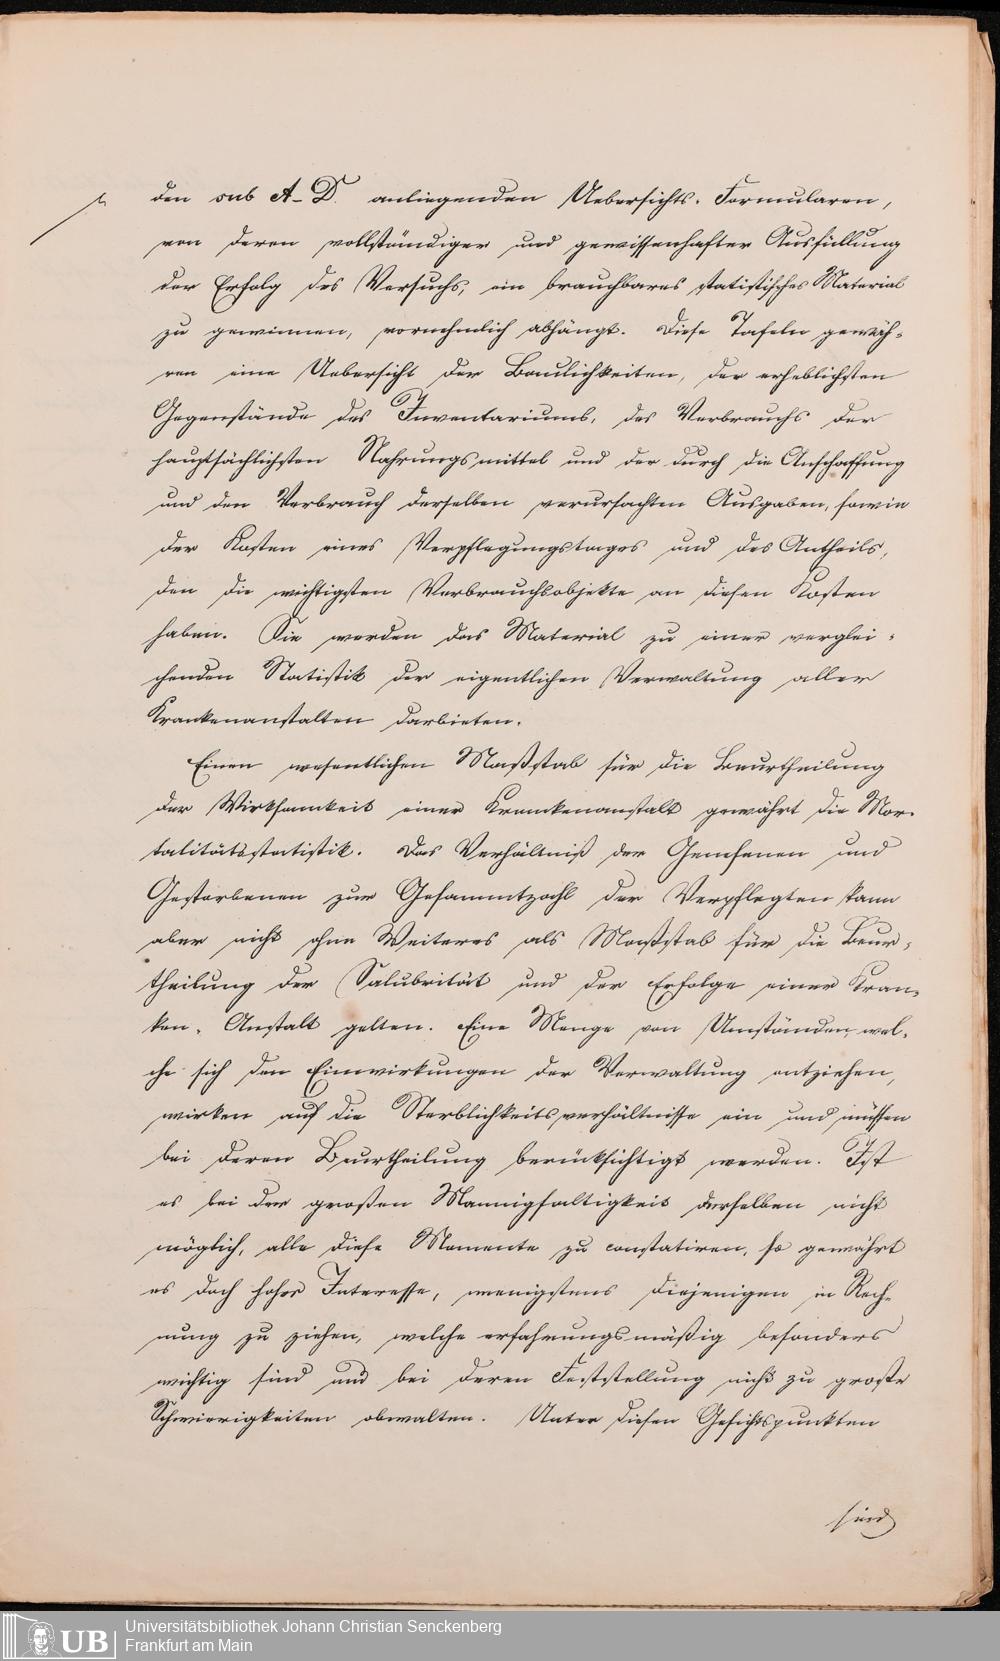 den sub A-D. anliegenden Uebersichts-Formularen,
von deren vollständiger und gewissenhafter Ausfüllung
der Erfolg des Versuchs, ein brauchbares statistisches Material
zu gewinnen, vornehmlich abhängt. Diese Tafeln gewäh-
ren eine Uebersicht der Baulichkeiten, der erheblichsten
Gegenstände des Inventariums, des Verbrauchs der
hauptsächlichsten Nahrungsmittel und der durch die Anschaffung
und den Verbrauch derselben verursachten Ausgaben, sowie
der Kosten eines Verpflegungstages und des Antheils,
den die wichtigsten Verbrauchsobjekte an diesen Kosten
haben. Sie werden das Material zu einer verglei-
chenden Statistik der eigentlichen Verwaltung aller
Krankenanstalten darbieten.
Einen wesentlichen Maßstab für die Beurtheilung
der Wirksamkeit einer Krankenanstalt gewährt die Mor-
talitätsstatistik. Das Verhältniß der Genesenen und
Gestorbenen zur Gesammtzahl der Verpflegten kann
aber nicht ohne Weiteres als Maßstab für die Beur-
theilung der Salubrität und der Erfolge einer Kran-
ken-Anstalt gelten. Eine Menge von Umständen, wel-
che sich den Einwirkungen der Verwaltung entziehen,
wirken auf die Sterblichkeitsverhältnisse ein und müssen
bei deren Beurtheilung berücksichtigt werden. Ist
es bei der großen Mannigfaltigkeit derselben nicht
möglich, alle diese Momente zu constatiren, so gewährt
es doch hohes Interesse, wenigstens diejenigen in Rech-
nung zu ziehen, welche erfahrungsmäßig besonders
wichtig sind und bei deren Feststellung nicht zu große
Schwierigkeiten obwalten. Unter diesen Gesichtspunkten
sind
UB
Universitätsbibliothek Johann Christian Senckenberg
Frankfurt am Main